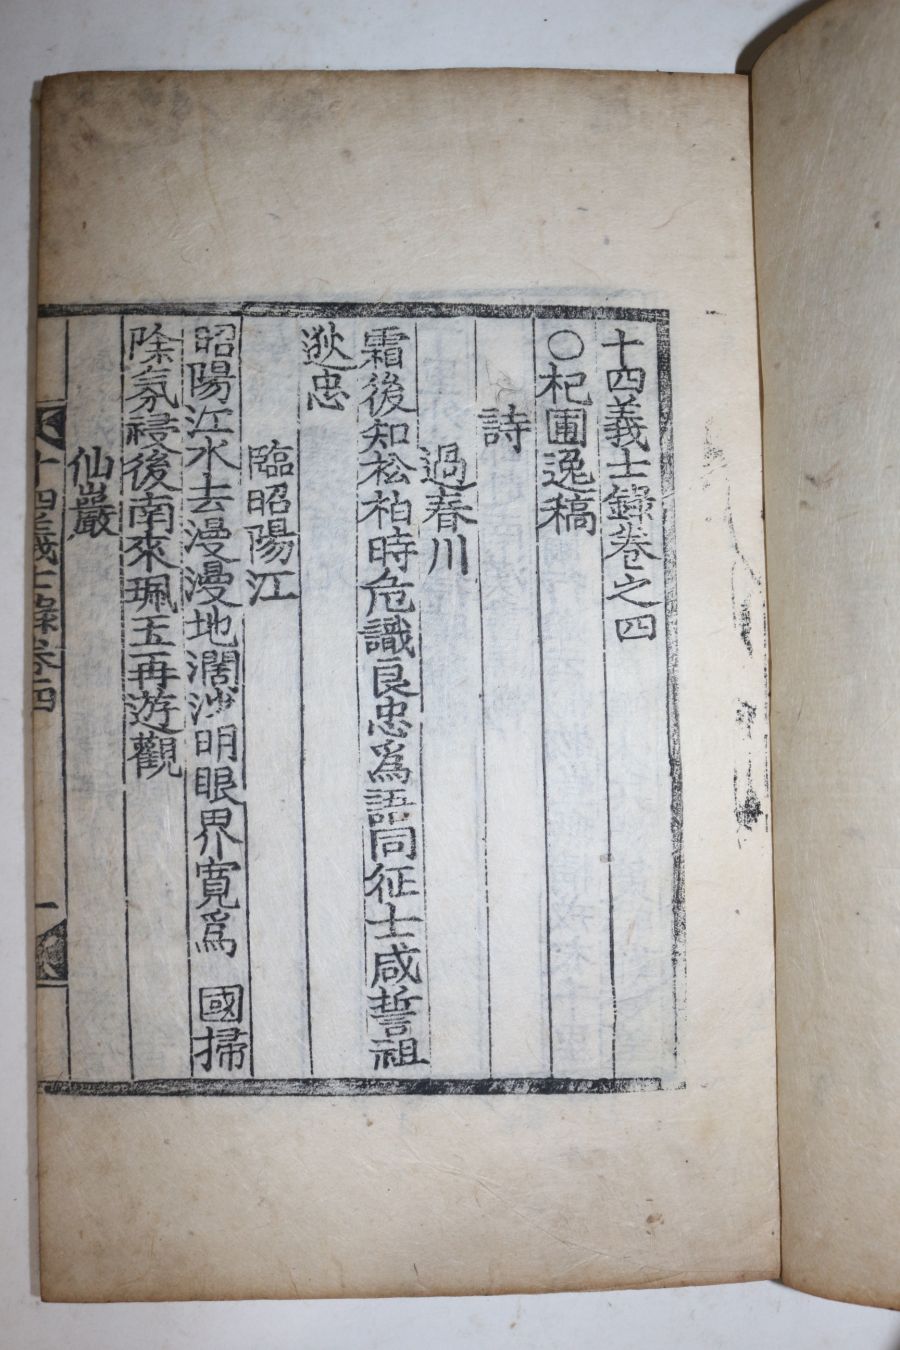 十四義士錄卷之四
○杞圃逸稿
詩
過春川
霜後知松柏時危識良忠爲語同征士咸誓祖
逖忠
臨昭陽江
昭陽江水去漫漫地濶沙明眼界寬爲 國掃
除氛祲後南來珮玉再遊觀
仙巖
十四義士錄卷四
一